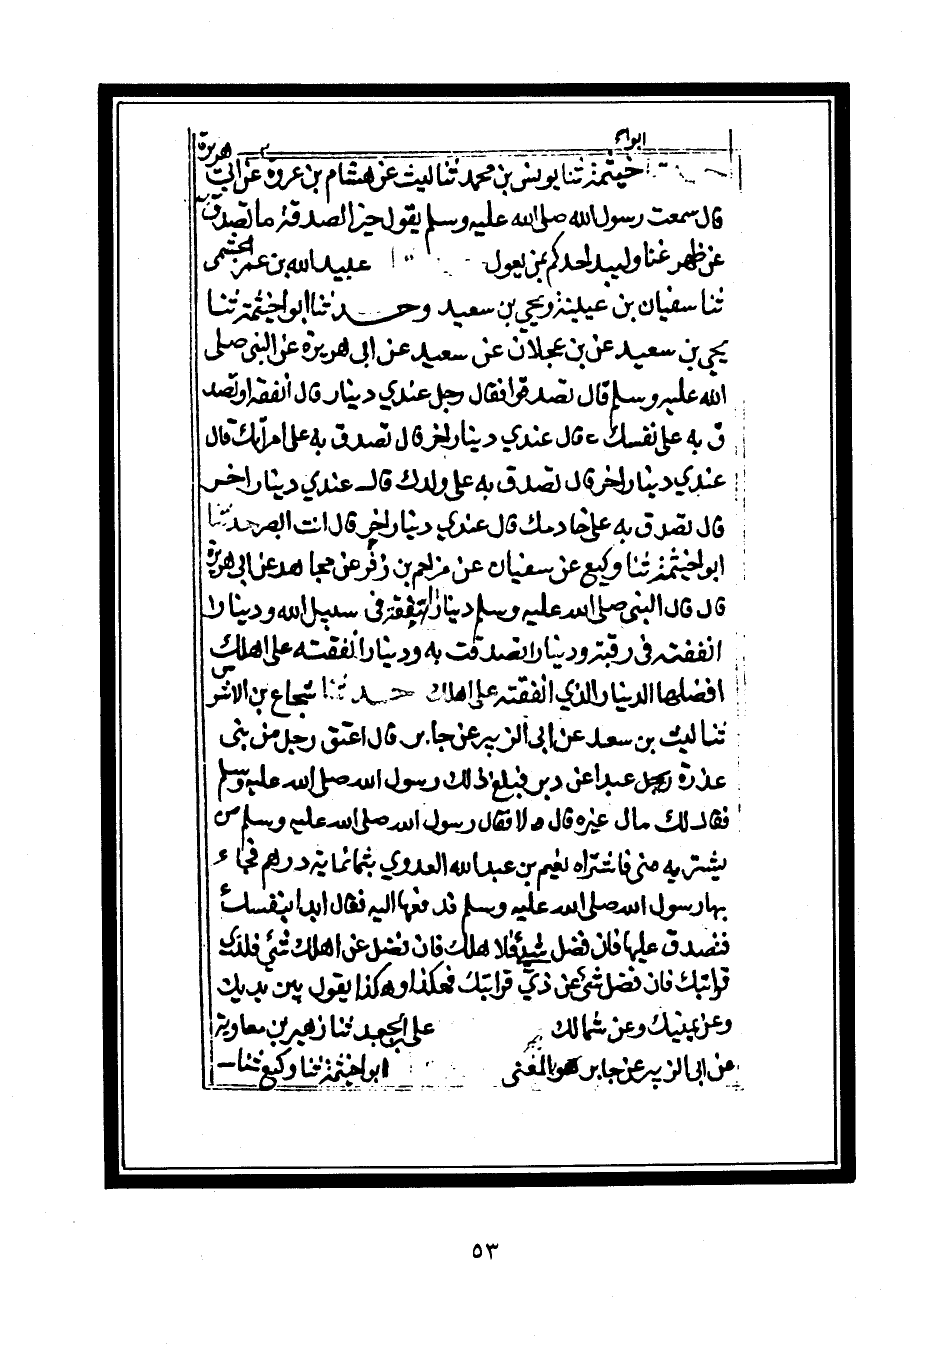 ابوا
هريرة
خيثمة ثنا يونس بن محمد ثنا ليث عن هشام بن عروة عن ابى
قال سمعت رسول الله صلى الله عليه وسلم يقول خير الصدقة ما تصدق
عن ظهر غنا وليبد احدكم بمن يعول عبيد الله بن عمر الجشمى
ثنا سفيان بن عيينة ويحي بن سعيد وحدثنا ابو اخيثمة ثنا
يحي بن سعيد عن بن عجلان عن سعيد عن ابى هريرة عن النبى صلى
الله عليه وسلم قال تصدقوا فقال رجل عندي دينار قال انفقه او تصد
ق به على نفسك قال عندي دينار اخر قال تصدق به على امراتك قال
عندي دينار اخر قال تصدق به على ولدك قال عندي دينار اخر
قال تصدق به على خادمك قال عندي دينار اخر قال انت ابصر حدثنا
ابو اخيثمة ثنا وكيع عن سفيان عن مزاحم بن زفر عن مجاهد عن ابى هريرة
قال قال النبى صلى الله عليه وسلم دينارا انفقته فى سبيل الله ودينارا
انفقته فى رقبة ودينارا تصدقت به ودينارا انفقته على اهلك
افضلها الدينار الذي انفقته على اهلك حدثنا شجاع بن الاشرس
ثنا ليث بن سعد عن ابى الزبير عن جابر قال اعتق رجل من بنى
عذرة رجل عبدا عن دبر فبلغ ذلك رسول الله صلى الله عليه وسلم
فقال لك مال غيره قال لا فقال رسول الله صلى الله عليه وسلم من
يشتريه منى فاشتراه نعيم بن عبد الله العدوي بثمانماية درهم فجاء
بها رسول الله صلى الله عليه وسلم فدفعها اليه فقال ابدا بنفسك
فتصدق عليها فان فضل شئ فلاهلك فان فضل عن اهلك شئ فلذي
قرابتك فان فضل شئ عن ذي قرابتك فهكذا وهكذا يقول بين يديك
وعن يمينك وعن شمالك على بن الجعد ثنا زهير بن معاوية
عن ابى الزبير عن جابر نحو المعنى ابو اخيثمة ثنا وكيع ثنا
٥٣